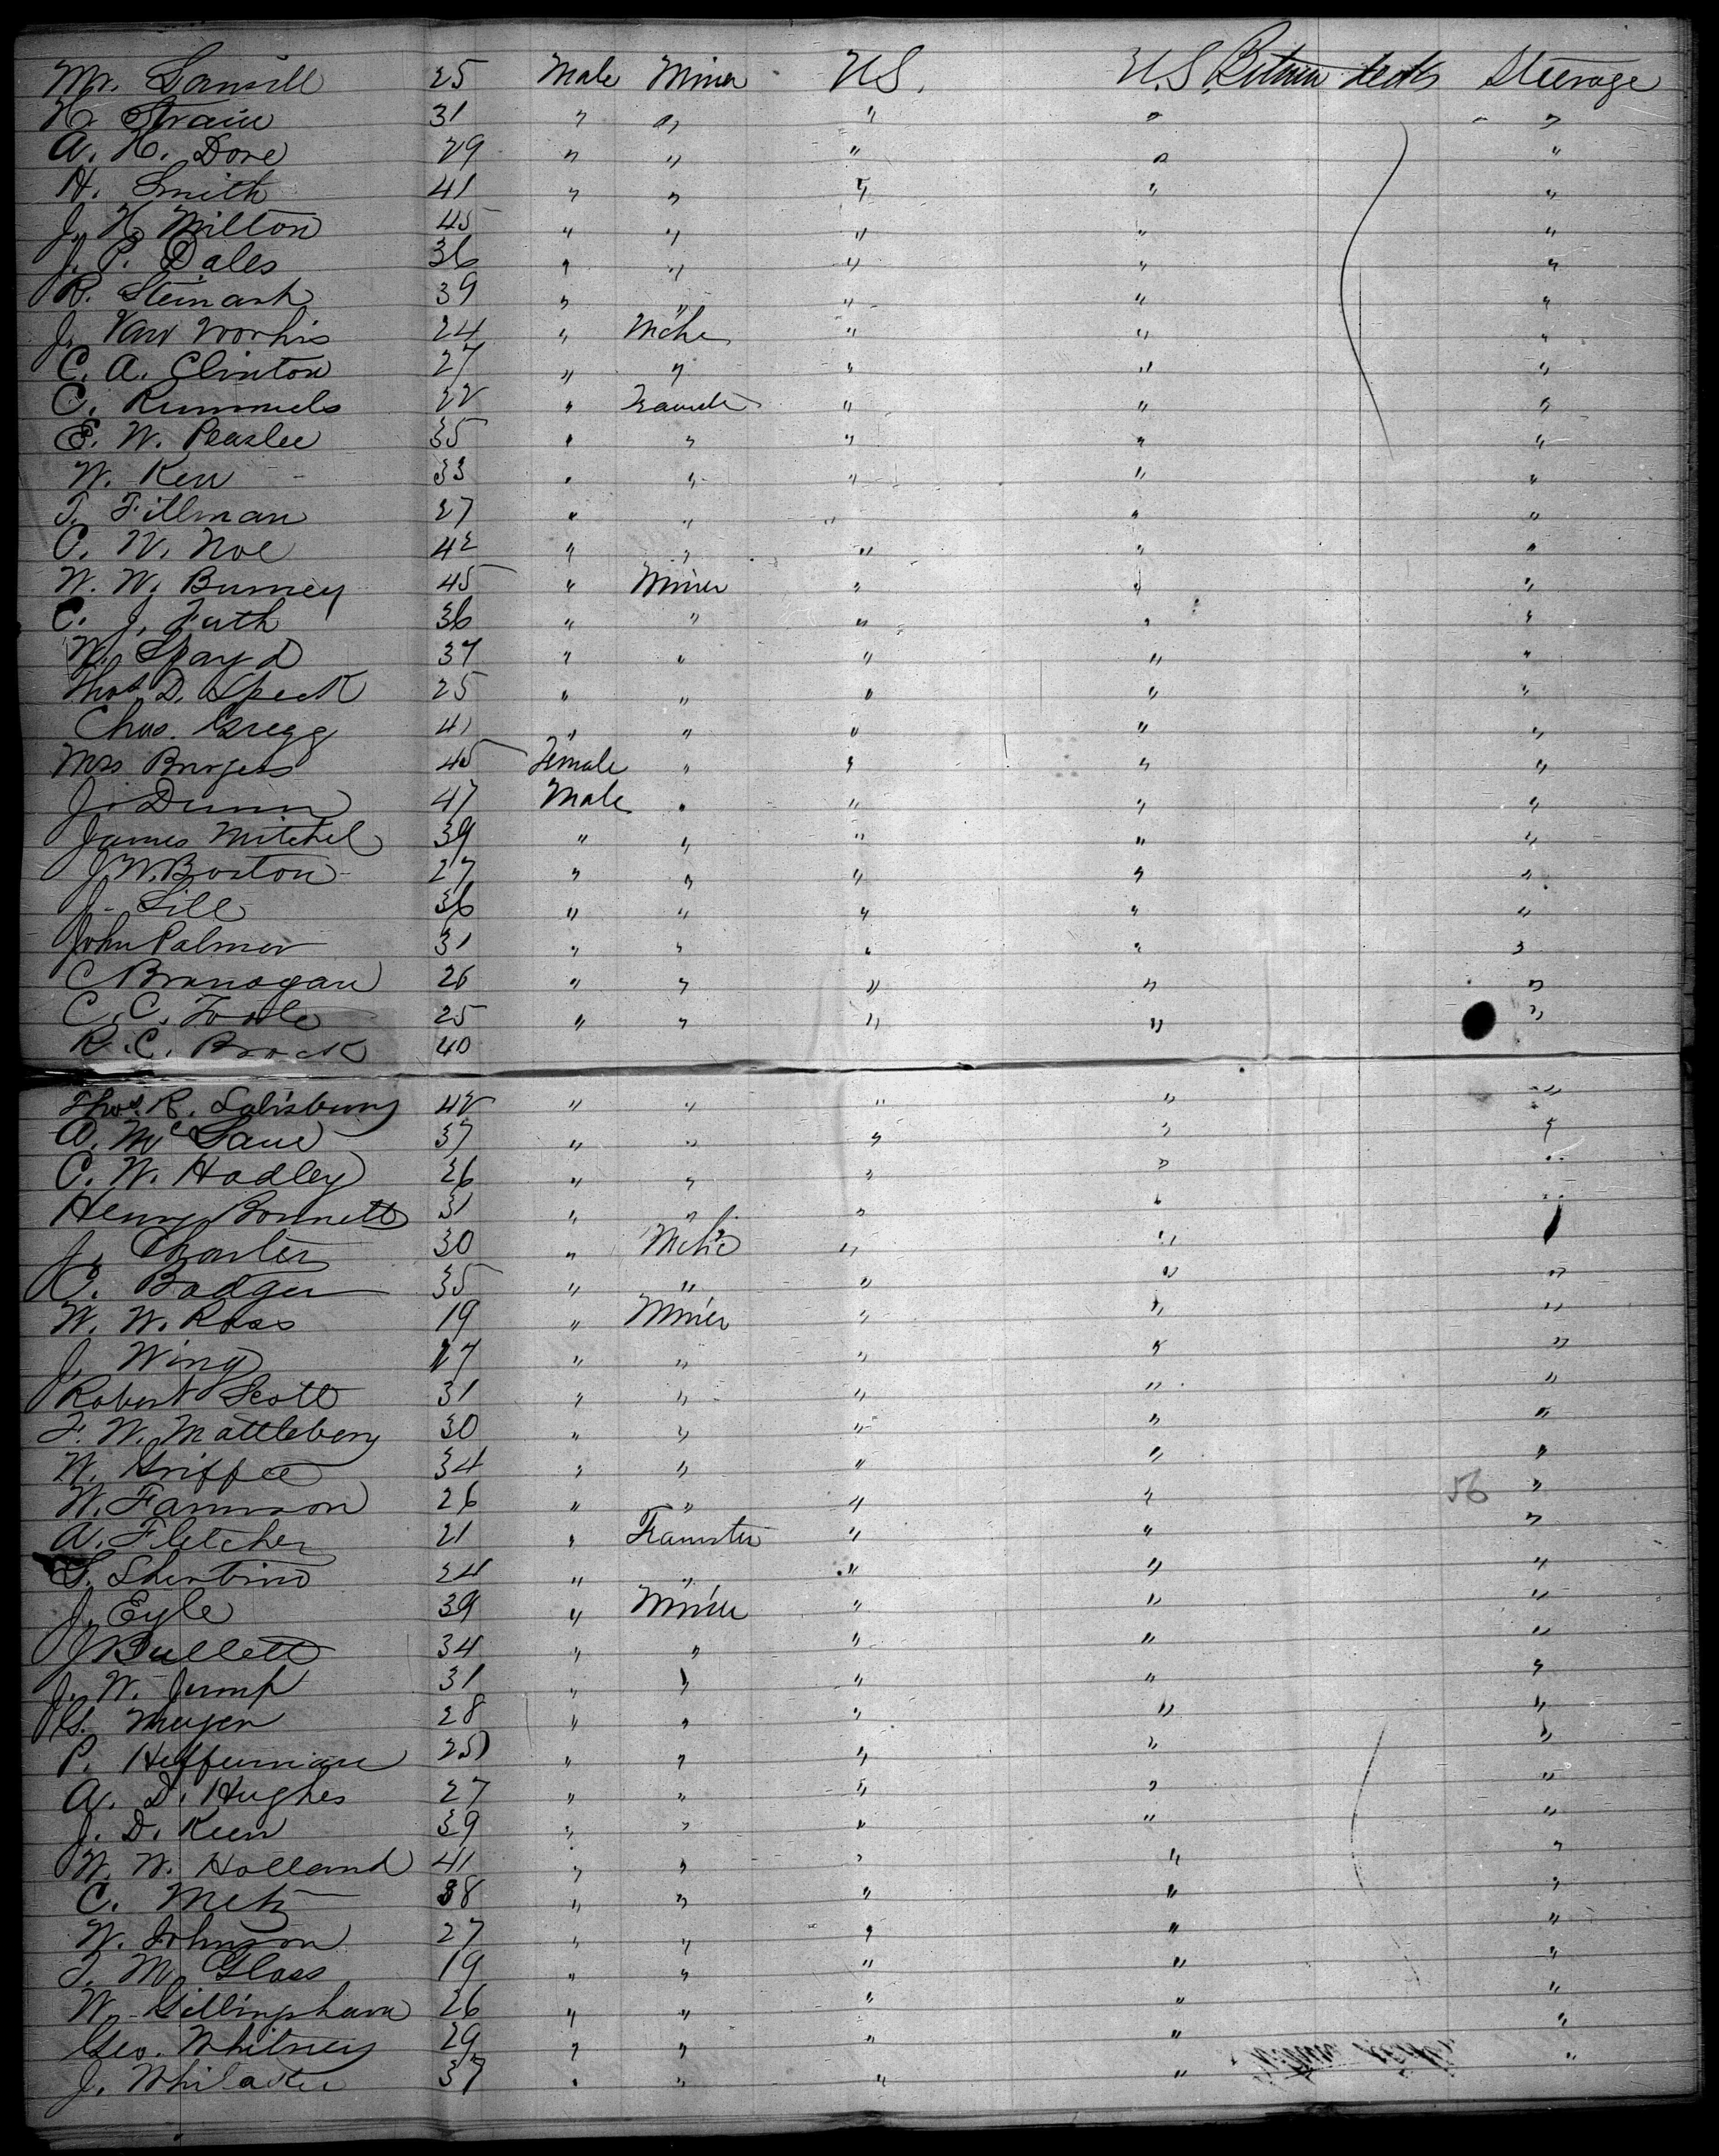 Mr. Lamill 25 Male Miner U.S. U.S. Return tickts Steerage
H. Strain 31 " " " " "
A. H. Dore 29 " " " " "
H. Smith 41 " " " " "
J. H. Milton 45 " " " " "
J. P. Dales 36 " " " " "
R. Steinart 39 " " " " "
J. Van Vorhis 24 " Mche " " "
C. A. Clinton 27 " " " " "
C. Rummels 22 " " " "
E. W. Peaslee 35 " " " " "
W. Kerr 33 " " " " "
T. Fillman 27 " " " " "
C. W. Noe 42 " " " " "
W. W. Burney 45 " Miner " " "
C. J. Fath 36 " " " " "
W. Spayd 37 " " " " "
Thos D. Speck 25 " " " " "
Chas. Gregg 41 " " " " "
Mrs Burgess 45 Female " " " "
J. Dunn 47 Male " " " "
James Mitchel 39 " " " " "
J. W. Boston 27 " " " " "
J. Lill 36 " " " " "
John Palmer 31 " " " " "
C Branagan 26 " " " " "
C. C. Toole 25 " " " " "
R. C. Brock 40
Thos. R. Salisbury 42 " " " " "
A. McLane 37 " " " " "
C. W. Hadley 26 " " " " "
Henry Bonnett 31 " " " " "
J. Charter 30 " Mchc " " "
C. Badger 35 " " " " "
W. W. Ross 19 " Miner " " "
J. Wing 27 " " " " "
Robert Scott 31 " " " " "
F. W. Mattlebery 30 " " " " "
W. Griffee 34 " " " " "
W. Farmson 26 " " " " 56 "
A. Fletcher 21 " Teamster " " "
S. Shertrino 24 " " " " "
J. Eyle 39 " Miner " " "
J Bullett 34 " " " " "
J. W. Jump 31 " " " " "
G. Meyer 28 " " " " "
P. Heffernian 25 " " " " "
A. D. Hughes 27 " " " " "
J. D. Keen 39 " " " " "
W. W. Holland 41 " " " " "
C. Metz 38 " " " " "
W. Johnson 27 " " " " "
T. M. Glass 19 " " " " "
W. Gillingham 26 " " " " "
Geo. Whitney 29 " " " " "
J. Whilacter 37 " " " " "